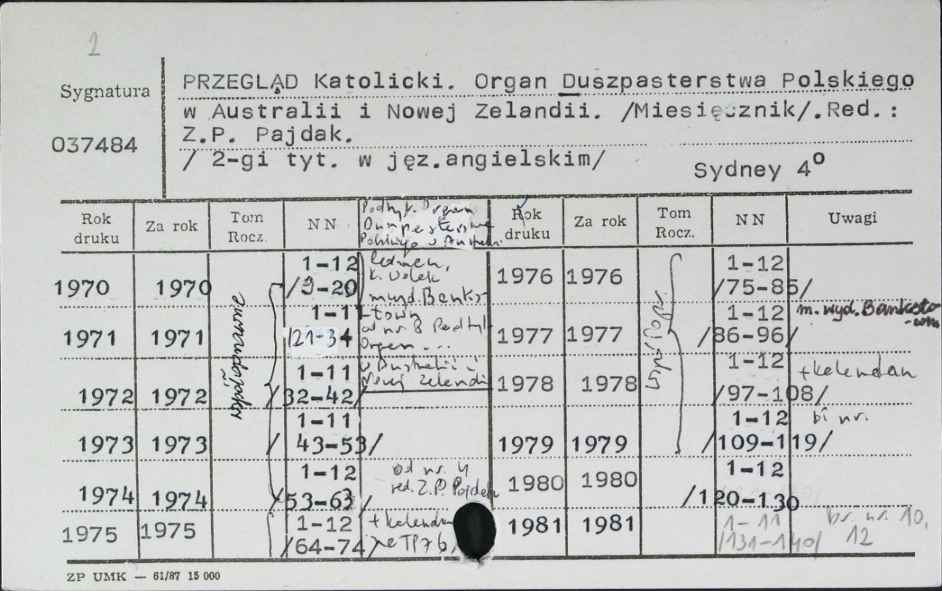 2
Sygnatura
037484
PRZEGLĄD Katolicki. Organ Duszpasterstwa Polskiego
w Australii i Nowej Zelandii. /Miesięcznik/.Red.:
Z.P. Pajdak.
/ 2-gi tyt. w jęz.angielskim/
Sydney 4º
Rok druku Za rok Tom Rocz. N N Rok druku Za rok Tom Rocz. N N Uwagi
1970 1970 1-12 /9-20/ 1976 1976 1-12 /75-85/
1971 1971 1-11 /21-34 1977 1977 1-12 /86-96/ m. wyd. Banksto-wn
1972 1972 1-11 /32-42/ 1978 1978 1-12 /97-108/ + kalendarz
1973 1973 1-11 / 43-53/ 1979 1979 1-12 /109-119/
1974 1974 1-12 /53-63/ od nr. 4 red. Z.P. Pajdak 1980 1980 1-12 /120-130
1975 1975 1-12 /64-74/ + kalendarz 1981 1981 1-11 /131-140/ br. nr. 10, 12
ZP UMK — 61/87 15 000